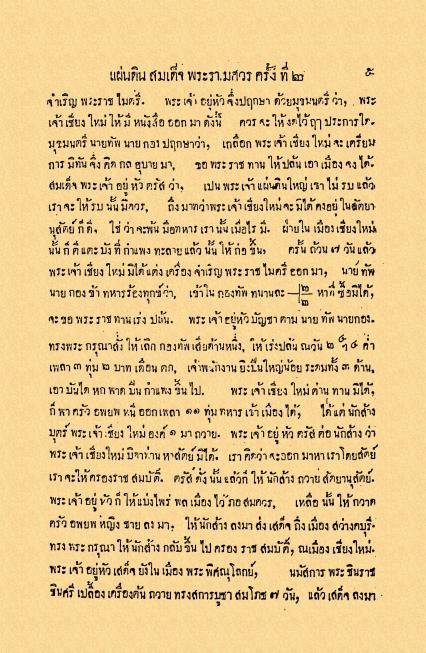 แผ่นดิน สมเด็จ พระรา,มศวร ครั้ง ที่ ๒ ๕
จำเริญ พระราช ไมตรี. พระ เจ้า อยู่ หัว จึ่ง ปฤกษา ด้วย มุขมนตรี ว่า, พระ
เจ้า เชียง ใหม่ ให้ มี หนังสือ ออก มา ดังนี้ ควร จะ ให้ งดไว้ ฤๅ ประการ ใด.
มุขมนตรี นายทัพ นาย กอง ปฤกษาว่า, เกลือก พระ เจ้า เชียง ใหม่ จะ เตรียม
การ มิทัน จึ่ง คิด กล อุบาย มา, ขอ พระ ราช ทาน ให้ ปล้น เอา เมือง จง ได้.
สมเด็จ พระ เจ้า อยู่ หัว ตรัส ว่า, เปน พระ เจ้า แผ่นดินใหญ่ เขา ไม่ รบ แล้ว
เรา จะ ให้ รบ นั้น มิควร, ถึง มาทว่า พระ เจ้า เชียงใหม่ จะ มิได้ คงอยู่ ในสัตยา
นุสัตย์ ก็ ดี, ใช่ ว่า จะ พ้น มือทหาร เรา นั้น เมื่อไร มี. ฝ่าย ใน เมือง เชียงใหม่
นั้น ก็ ดี แตะ บัง ที่ กำแพง ทะลาย แล้ว นั้น ให้ ก่อ ขึ้น, ครั้น ถ้วน ๗ วัน แล้ว
พระ เจ้า เชียง ใหม่ มิได้ แต่ง เครื่อง จำเริญ พระ ราช ไมตรี ออก มา, นาย ทัพ
นาย กอง ข้า ทหาร ร้องทุกข์ ว่า, เข้าใน กองทัพ ทนานละ ๒ ๒ หาที่ ซื้อ มิได้,
จะ ขอ พระ ราช ทาน เร่ง ปล้น. พระ เจ้า อยู่หัว บัญชา ตาม นาย ทัพ นายกอง.
ทรงพระ กรุณาสั่ง ให้ เลิก กองทัพ เสีย ด้านหนึ่ง, ให้ เร่งปล้น ณวัน ค่ำ
เพลา ๓ ทุ่ม ๒ บาท เดือน ตก, เจ้าพนักงาน ยิงปืนใหญ่น้อย ระดม ทั้ง ๓ ด้าน,
เอา บันได หก พาด ปีน กำแพง ขึ้น ไป. พระ เจ้า เชียง ใหม่ ต้าน ทาน มิได้,
ก็ พา ครัว อพยพ หนี ออก เพลา ๑๑ ทุ่ม ทหาร เข้า เมือง ได้, ได้ แต่ นักส้าง
บุตร์ พระ เจ้า เชียง ใหม่ องค์ ๑ มา ถวาย. พระ เจ้า อยู่ หัว ตรัส ต่อ นักส้าง ว่า
พระ เจ้า เชียง ใหม่ บิดาท่าน หาสัตย์ มิได้. เรา คิดว่า จะ ออก มา หา เรา โดยสัตย์
เรา จะ ให้ ครอง ราช สมบัติ. ตรัส ดัง นั้น แล้วก็ ให้ นักส้าง ถวาย สัตยานุสัตย์.
พระ เจ้า อยู่ หัว ก็ ให้ แบ่งไพร่ พล เมือง ไว้ ภอ สมควร, เหลือ นั้น ให้ กวาด
ครัว อพยพ หญิง ชาย ลง มา, ให้ นักส้าง ลงมา ส่ง เสด็จ ถึง เมือง สว่างคบุรี.
ทรง พระ กรุณา ให้ นักส้าง กลับ ขึ้น ไป ครอง ราช สมบัติ, ณเมือง เชียงใหม่.
พระ เจ้า อยู่หัว เสด็จ ยังใน เมือง พระ พิศณุโลกย์, นมัสการ พระ ชินราช
ชินศรี เปลื้อง เครื่องต้น ถวาย ทรงสการบูชา สมโภช ๗ วัน, แล้ว เสด็จ ลงมา